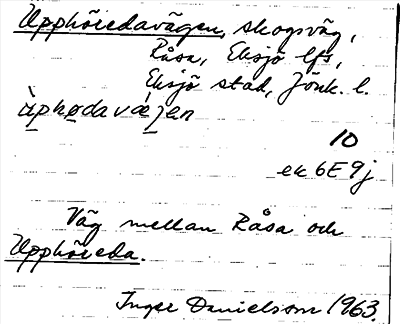 Upphöjedavägen, skogsväg,
Råsa, Eksjö lfs,
Eksjö stad, Jönk. l.
ùphødavæ̗jen
10
ek 6E9j
Väg mellan Råsa och
Upphöjeda.
Inger Danielsson 1963.